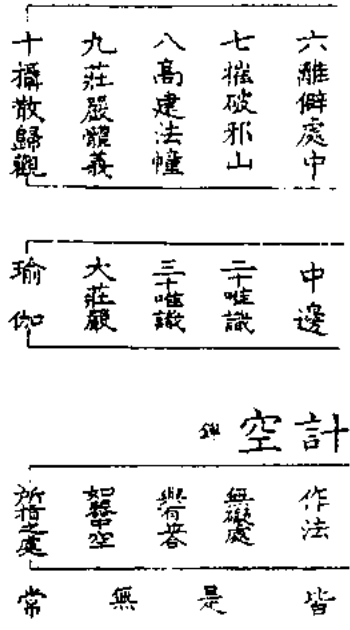 六離僻處中
七摧破邪山
八高建法幢
九莊嚴體義
十攝散歸觀
中邊
二十唯識
三十唯識
大莊嚴
瑜伽
計空
作法
無礙處
如器中空
所指之處
皆是無常